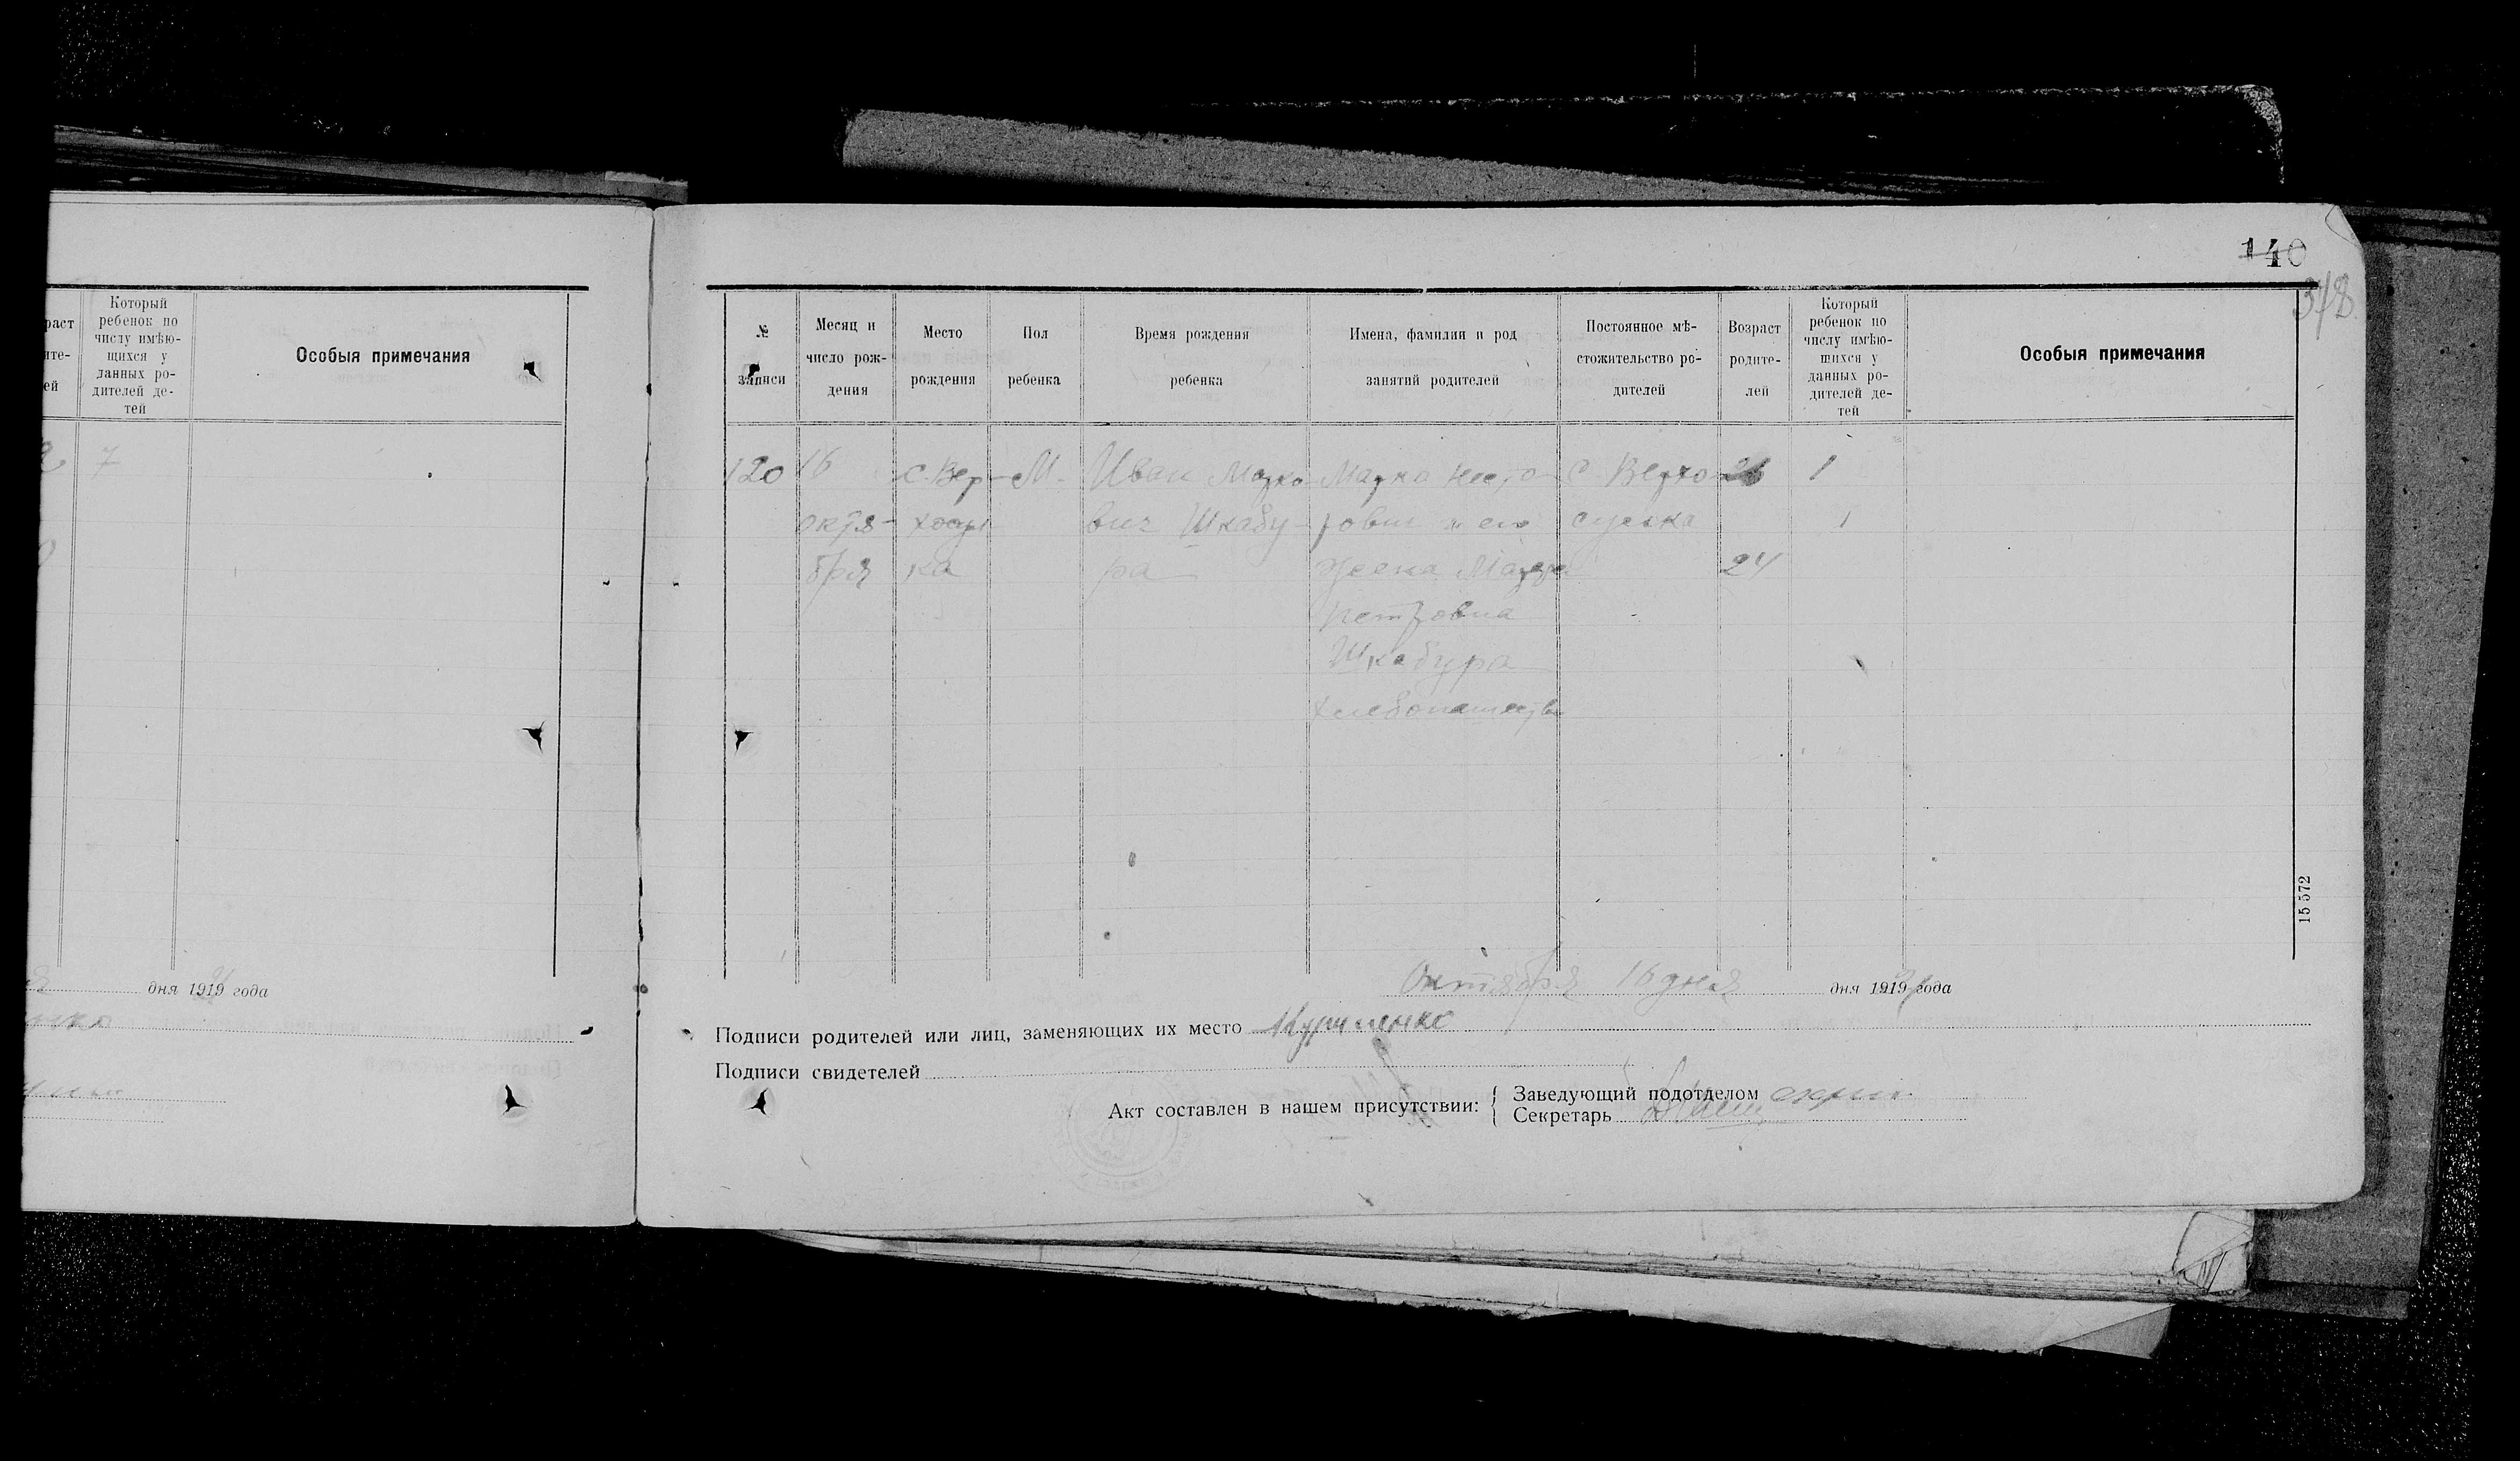 140
318
раст
ите-
ей
Который
ребенок по
числу имѣю-
щихся у
данных ро-
дителей де-
тей
Особыя примечания
7
дня 1919 года
№
записи
Месяц и
число рож-
дения
Место
рождения
Пол
ребенка
Время рождения
ребенка
Имена, фамилии и род
занятий родителей
Постоянное мѣ-
стожительство ро-
дителей
Возраст
родите-
лей
Который
ребенок по
числу имѣю-
щихся у
данных ро-
дителей де-
тей
Особыя примечания
120 16 с. Вер- М. Иван Марко- Марко Несто- с. Верхо- 1
октя- вич Шкабу- рович и его 1
бря ка ра жена 24
Петровна
Шкабура
15572
Октября 16 дня дня 1919 года
Подписи родителей или лиц, заменяющих их место
Подписи свидетелей
Акт составлен в нашем присутствии:
Заведующий подотделом
Секретарь